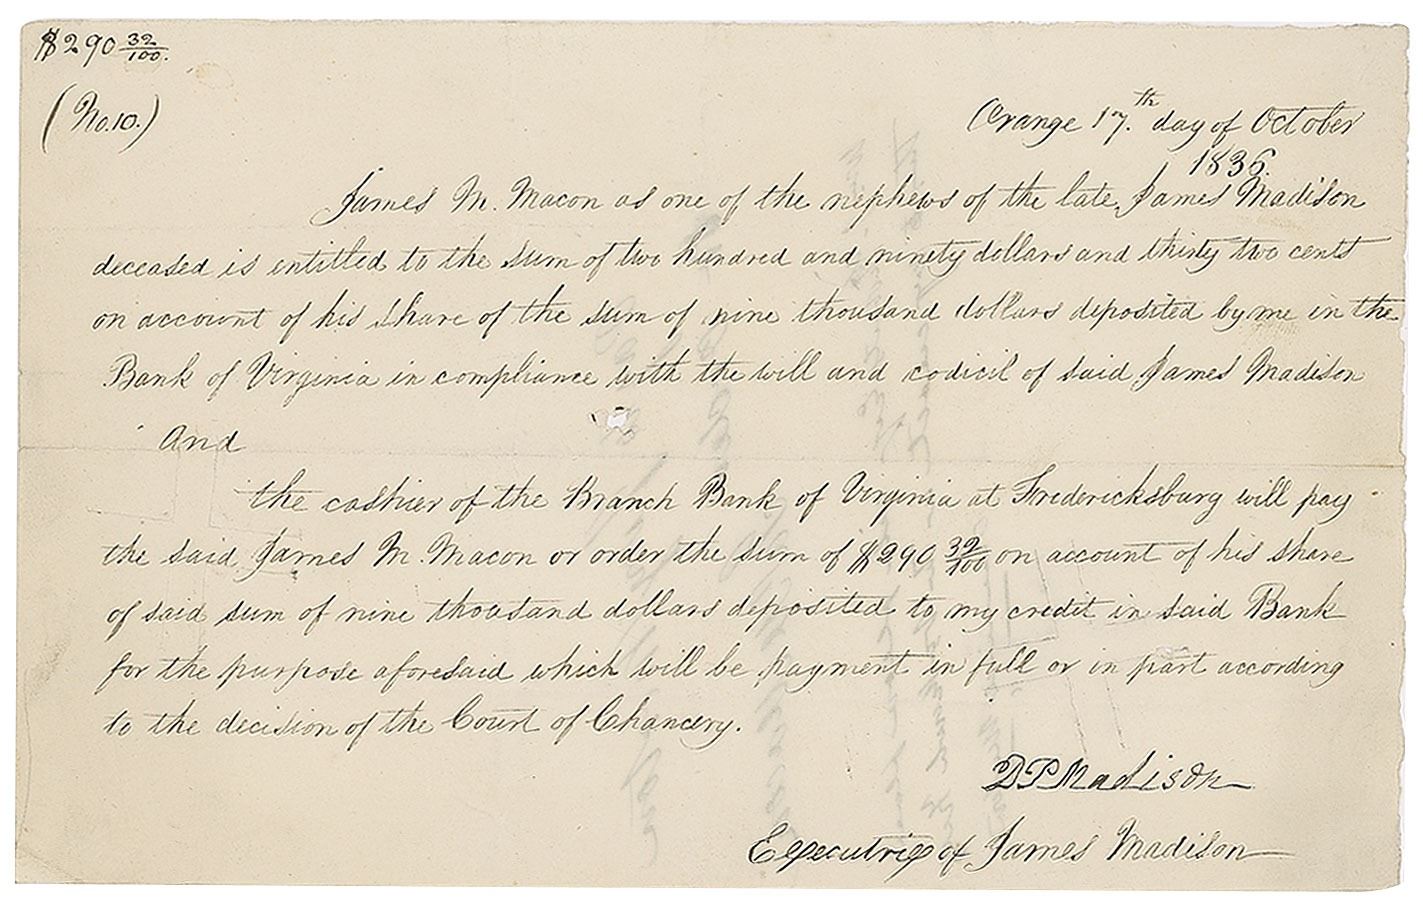 $290 32/100.
(No. 10.)
Orange 17.th day of October
1836.
James M. Macon as one of the nephews of the late James Madison
deceased is entitled to the sum of two hundred and ninety dollars and thirty two cents
on account of his share of the sum of nine thousand dollars deposited by me in the
Bank of Virginia in compliance with the will and codicil of said James Madison
And
the cashier of the Branch Bank of Virginia at Fredericksburg will pay
the said James M. Macon or order the sum of $290 32/100 on account of his share
of said sum of nine thousand dollars deposited to my credit in said Bank
for the purpose aforesaid which will be payment in full or in part according
to the decision of the Court of Chancery.
D P Madison
Executrix of James Madison